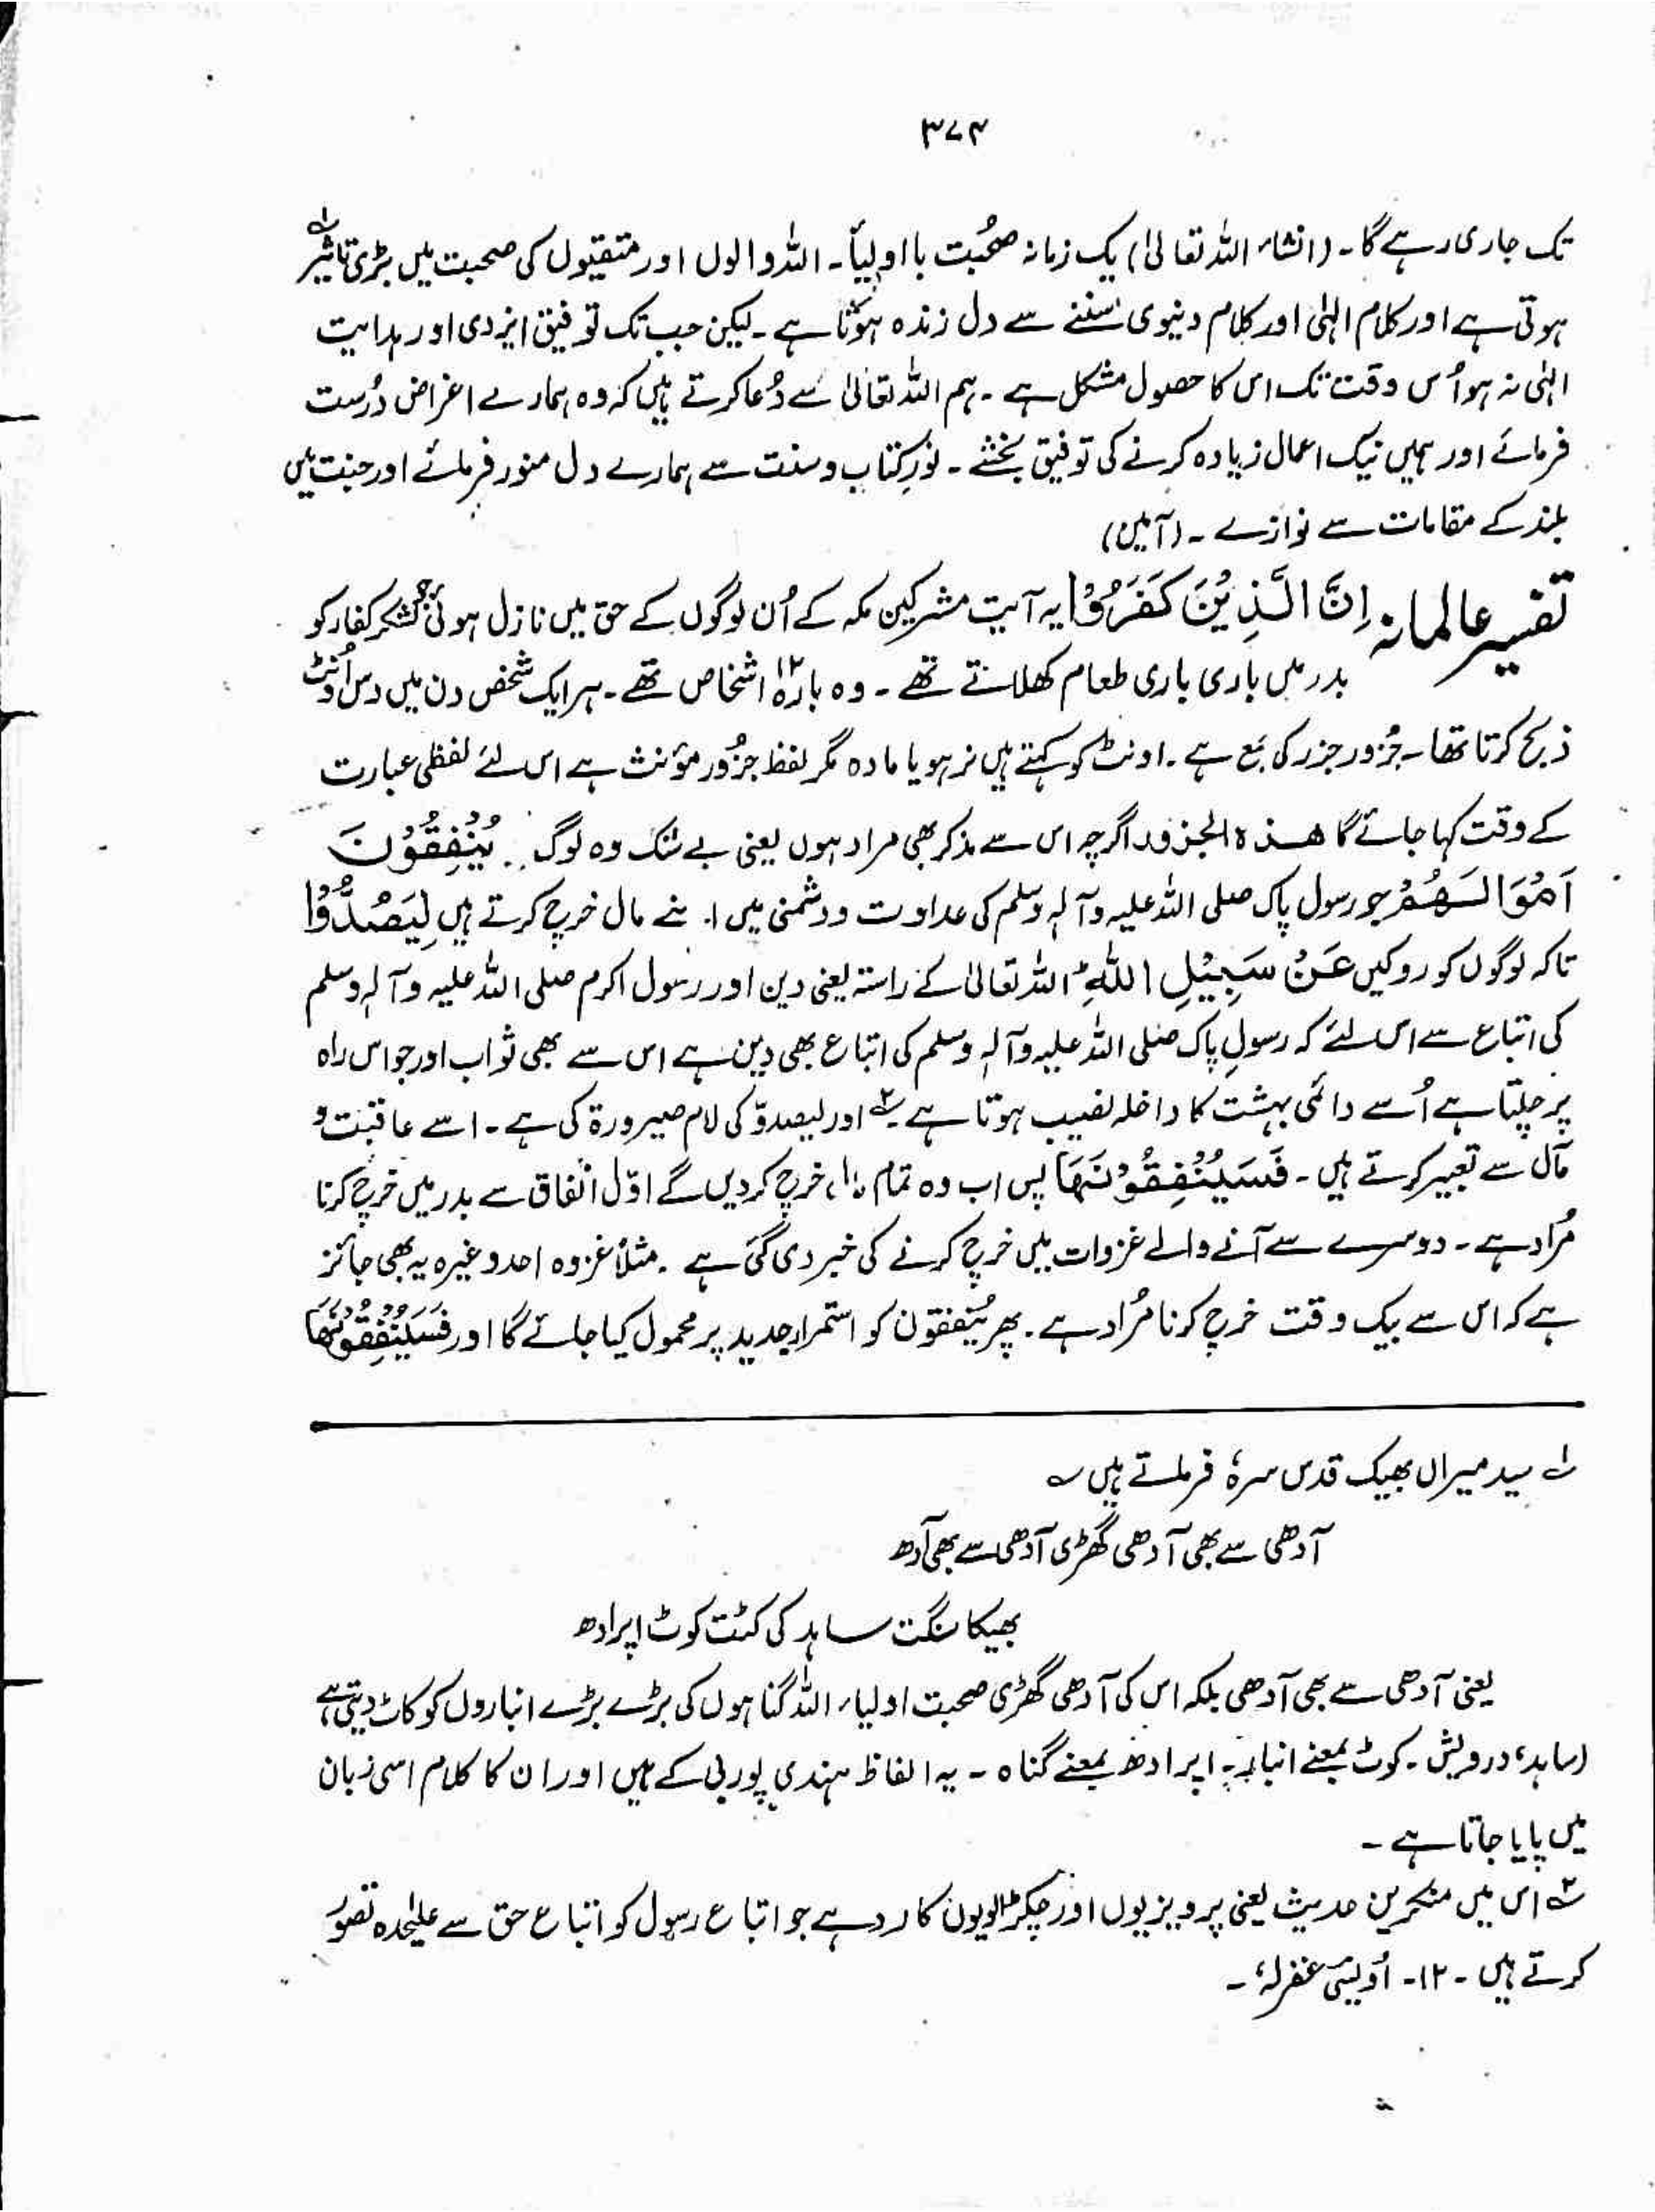 ۳۷۴
تک جاری رہے گا۔ (انشاء اللہ تعالیٰ) یک زمانہ صحُبت با اولیاؔ۔ اللہ والوں اور متقیوں کی صحبت میں بڑی تاثیر لہ
ہوتی ہے اور کلام الہٰی اور کلام دنیوی سننے سے دل زندہ ہوتا ہے۔ لیکن جب تک توفیق ایزدی اور ہدایت
الہٰی نہ ہو اُس وقت تک اس کا حصول مشکل ہے۔ ہم اللہ تعالیٰ سے دُعا کرتے ہیں کہ وہ ہمارے اغراض دُرست
فرمائے اور ہمیں نیک اعمال زیادہ کرنے کی توفیق بخشے۔ نورِ کتاب و سنت سے ہمارے دل منور فرمائے اور جنت میں
بلند کے مقامات سے نوازے۔ (آمین)
تفسیر عالمانہ اِنَّ الَّذِیْنَ کَفَرُوْا یہ آیت مشرکین مکہ کے اُن لوگوں کے حق میں نازل ہوئی جو لشکر کفار کو
بدر میں باری باری طعام کھلاتے تھے۔ وہ بارہ ۱۲ اشخاص تھے۔ ہر ایک شخص دن میں دس اُونٹ
ذبح کرتا تھا۔ جُزور جزر کی جمع ہے۔ اونٹ کو کہتے ہیں نر ہو یا مادہ مگر لفظ جزُور مؤنث ہے اس لئے لفظی عبارت
کے وقت کہا جائے گا ھذہ الجزور اگرچہ اس سے مذکر بھی مراد ہوں یعنی بے شک وہ لوگ یُنْفِقُوْنَ
اَمْوَالَہُمْ جو رسول پاک صلی اللہ علیہ وآلہٖ وسلم کی عداوت و دشمنی میں اپنے مال خرچ کرتے ہیں لِیَصُدُّوْا
تاکہ لوگوں کو روکیں عَنْ سَبِیْلِ اللّٰہِ ؕ اللہ تعالیٰ کے راستہ یعنی دین اور رسول اکرم صلی اللہ علیہ وآلہٖ وسلم
کی اتباع سے اس لئے کہ رسولِ پاک صلی اللہ علیہ وآلہٖ وسلم کی اتباع بھی دین ہے اس سے بھی ثواب اور جو اس راہ
پر چلتا ہے اُسے دائمی بہشت کا داخلہ نصیب ہوتا ہے ۲ہ اور لیصدوّ کی لام صیرورۃ کی ہے۔ اسے عاقبت و
مآل سے تعبیر کرتے ہیں۔ فَسَیُنْفِقُوْنَہَا پس اب وہ تمام مال خرچ کر دیں گے اوّل انفاق سے بدر میں خرچ کرنا
مُراد ہے۔ دوسرے سے آنے والے غزوات میں خرچ کرنے کی خبر دی گئی ہے۔ مثلاً غزوہ احد وغیرہ یہ بھی جائز
ہے کہ اس سے بیک وقت خرچ کرنا مُراد ہے۔ پھر یُنفقون کو استمرار جدید پر محمول کیا جائے گا اور فَسَیُنْفِقُوْنَہَا
لہ سید میراں بھیک قدس سرہٗ فرماتے ہیں ؎
آدھی سے بھی آدھی گھڑی آدھی سے بھی آدھ
بھیکا سنگت ساہد کی کٹت کوٹ اپرادھ
یعنی آدھی سے بھی آدھی بلکہ اس کی آدھی گھڑی صحبت اولیاء اللہ گناہوں کی بڑے بڑے انباروں کو کاٹ دیتی ہے
(ساہد، درویش۔ کوٹ بمعنے انبار۔ اپرادھ بمعنے گناہ۔ یہ الفاظ ہندی پوربی کے ہیں اور ان کا کلام اسی زبان
میں پایا جاتا ہے۔
۲ہ اس میں منکرین حدیث یعنی پرویزیوں اور چکڑالویوں کا رد ہے جو اتباع رسول کو اتباع حق سے علیٰحدہ تصوّر
کرتے ہیں۔ ۱۲۔ اُویسی غفرلہٗ۔